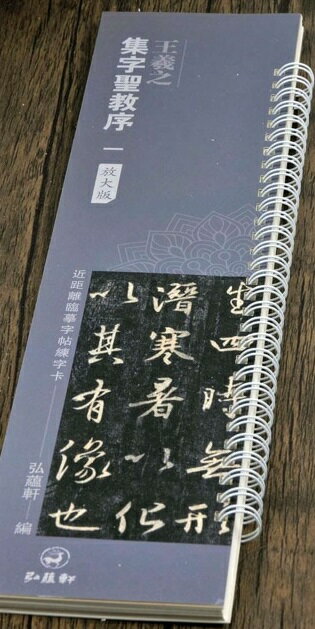 王羲之
集字聖教序 一
放大版
近距離臨摹字帖練字卡
弘蘊軒 編
生四時無形
潛寒暑以化
以其有像也
弘蘊軒